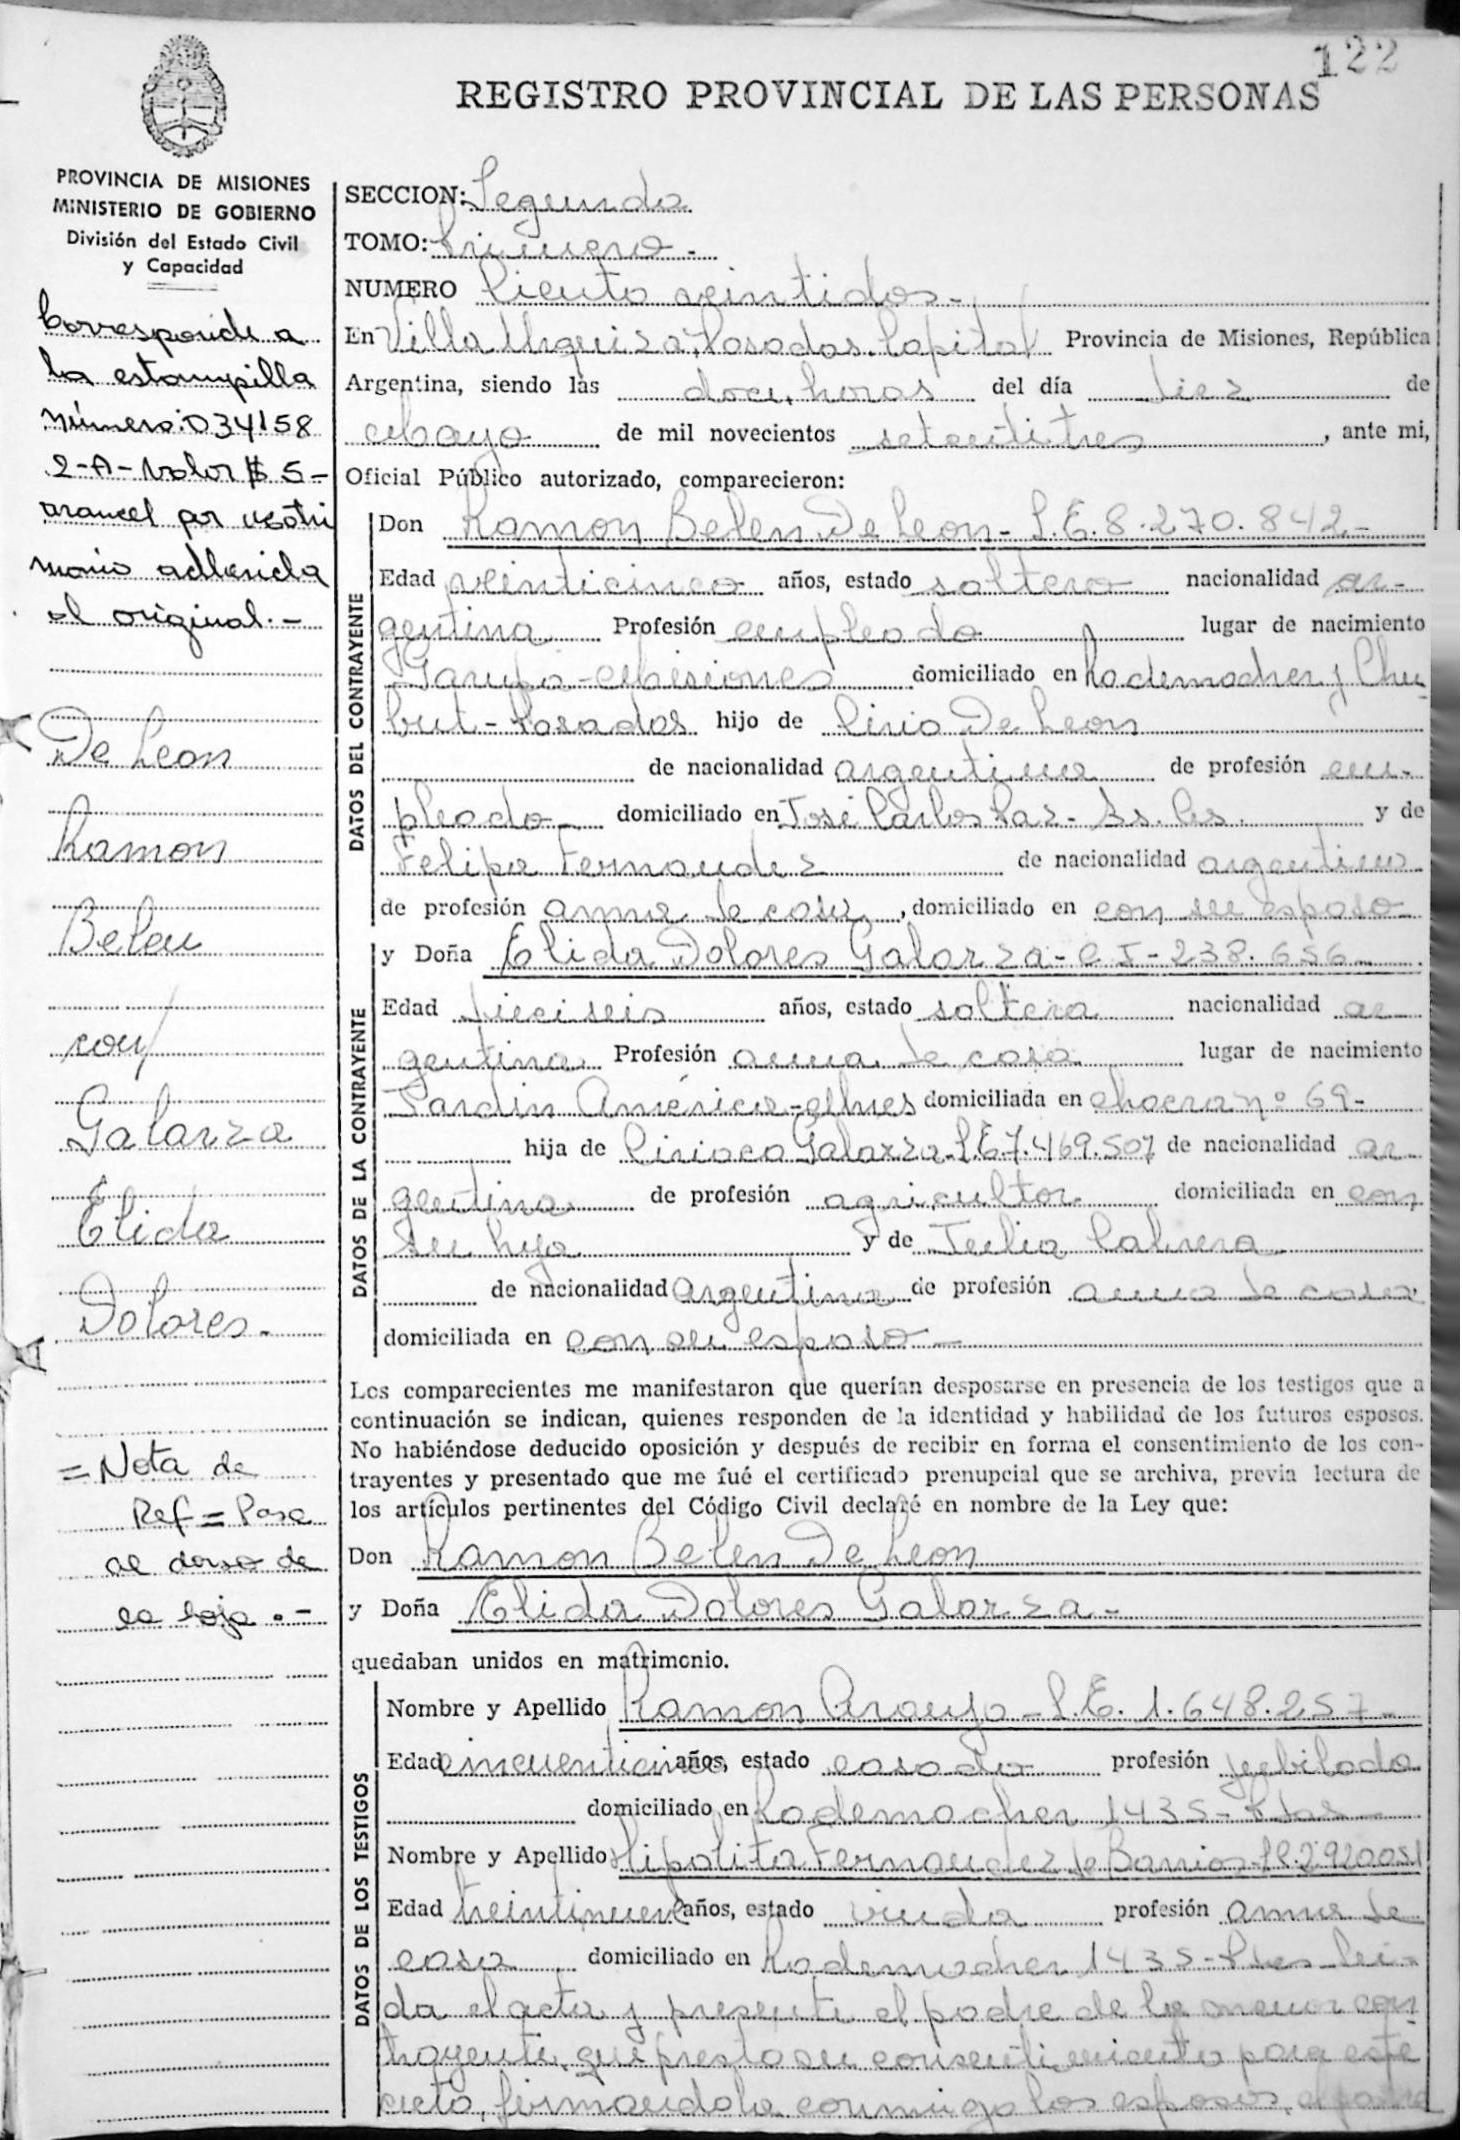 122
REGISTRO PROVINCIAL DE LAS PERSONAS
PROVINCIA DE MISIONES
MINISTERIO DE GOBIERNO
División del Estado Civil
y Capacidad
Corresponde a
la estampilla
número: 034158
2-A- Valor $ 5-
arancel por matri
monio adherida
al original.-
De Leon
Ramon
Belen
con/
Galarza
Elida
Dolores.-
= Nota de
Ref = Pasa
al dorso de
la hoja.-
SECCION: Segunda
TOMO: Primero-
NUMERO Ciento veintidos-
En Villa Urquiza, Posadas. Capital Provincia de Misiones, República
Argentina, siendo las doce, horas del día diez de
Mayo de mil novecientos setentitres, ante mi,
Oficial Público autorizado, comparecieron:
DATOS DEL CONTRAYENTE
Don Ramon Belen De Leon- L.E. 8.270.842-
Edad veinticinco años, estado soltero nacionalidad ar-
gentina Profesión empleado lugar de nacimiento
Garupa-Misiones domiciliado en Rademacher y Chu
but- Posadas hijo de Cirio De Leon
de nacionalidad argentina de profesión em-
pleado- domiciliado en José Carlos Paz- Bs. As. y de
Felipa Fernandez de nacionalidad argentina
de profesión ama de casa, domiciliado en con su esposo
DATOS DE LA CONTRAYENTE
y Doña Elida Dolores Galarza- C I- 238.656-
Edad dieciseis años, estado soltera nacionalidad ar-
gentina Profesión ama de casa lugar de nacimiento
Jardin América-Mnes domiciliada en chacra nº 69-
hija de Ciriaco Galarza-L.E.7.469.507 de nacionalidad ar-
gentina de profesión agricultor domiciliada en con
su hija y de Julia Cabrera
de nacionalidad argentina de profesión ama de casa
domiciliada en con su esposo-
Los comparecientes me manifestaron que querían desposarse en presencia de los testigos que a
continuación se indican, quienes responden de la identidad y habilidad de los futuros esposos.
No habiéndose deducido oposición y después de recibir en forma el consentimiento de los con-
trayentes y presentado que me fué el certificado prenupcial que se archiva, previa lectura de
los artículos pertinentes del Código Civil declaré en nombre de la Ley que:
Don Ramon Belen De Leon
y Doña Elida Dolores Galarza-
quedaban unidos en matrimonio.
DATOS DE LOS TESTIGOS
Nombre y Apellido Ramon Araujo- L.E. 1.648.257-
Edad cincuenticinco años, estado casado profesión jubilado
domiciliado en Rademacher 1435- Pdas-
Nombre y Apellido Hipolita Fernandez de Barrios-
Edad treintinueve años, estado viuda profesión ama de
casa domiciliado en Rademacher 1435- Pdas- Lei-
da el acta y presente el padre de la menor con
trayente, que presta su consentimiento para este
acto, firmandola conmigo los esposos, el padre